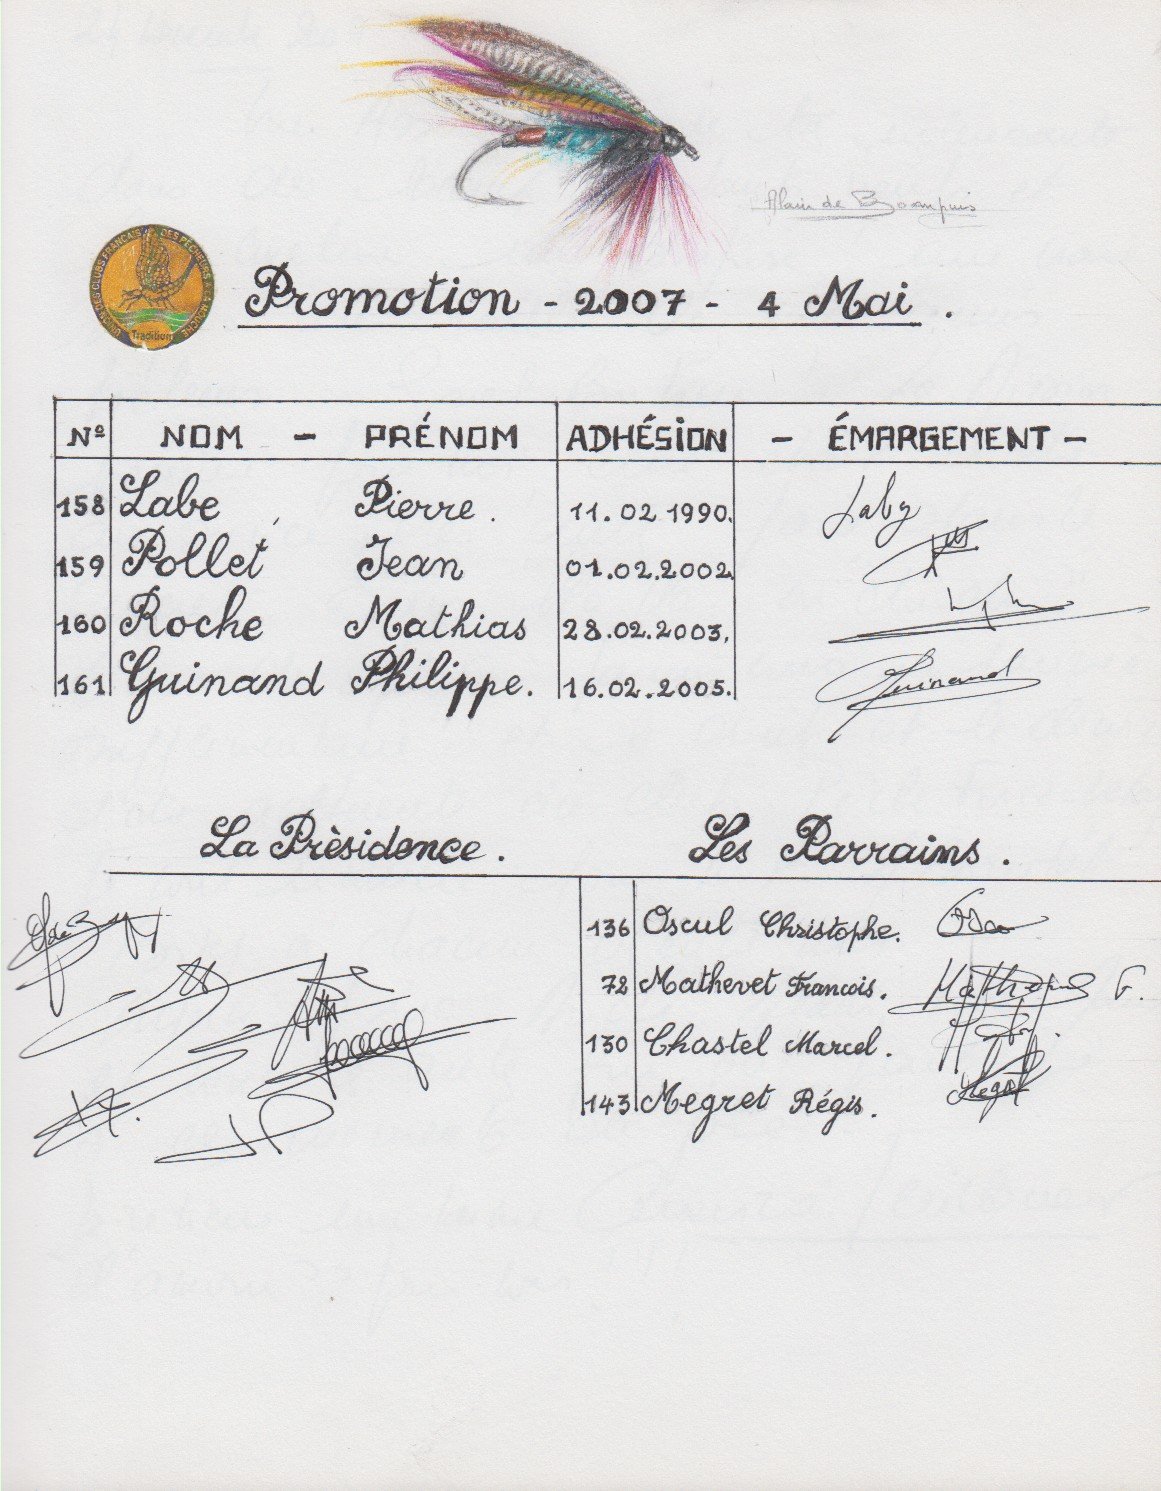 Alain de
UNION DES CLUBS FRANÇAIS DES PÊCHEURS A LA MOUCHE
Tradition
Promotion - 2007 - 4 Mai .
Nº NOM - PRÉNOM ADHÉSION - ÉMARGEMENT -
158 Labe Pierre . 11.02 1990.
159 Pollet Jean 01.02.2002.
160 Roche Mathias 28.02.2003.
161 Guinand Philippe. 16.02.2005. Guinand
La Prèsidence . Les Parrains .
136 Oscul Christophe.
72 Mathevet Francois. Mathevet F.
130 Chastel Marcel .
143 Megret Régis .